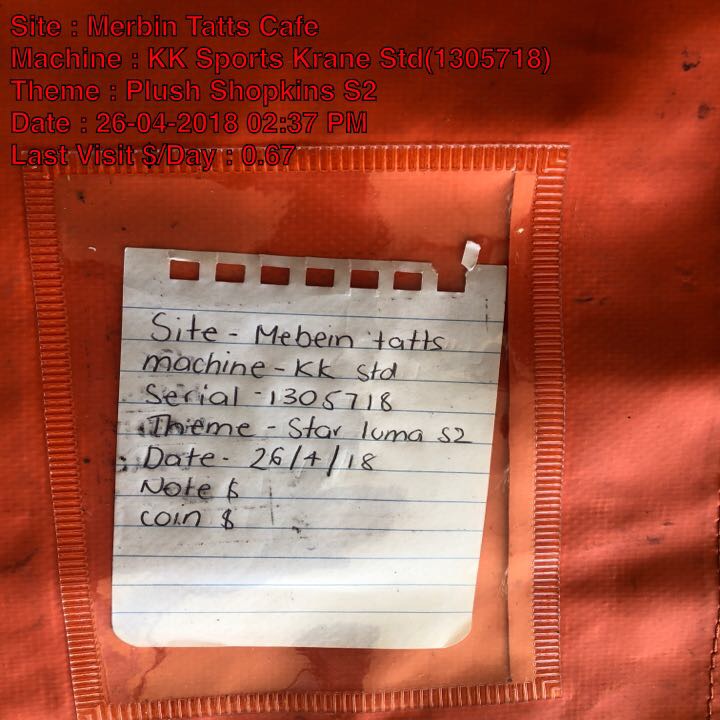 Site : Merbin Tatts Cafe
Machine : KK Sports Krane Std(1305718)
Theme : Plush Shopkins S2
Date : 26-04-2018 02:37 PM
Last Visit $/Day : 0.67
Site - Mebein tatts
machine - KK std
Serial - 1305718
Theme - Star luma S2
Date - 26/4/18
Note $
coin $